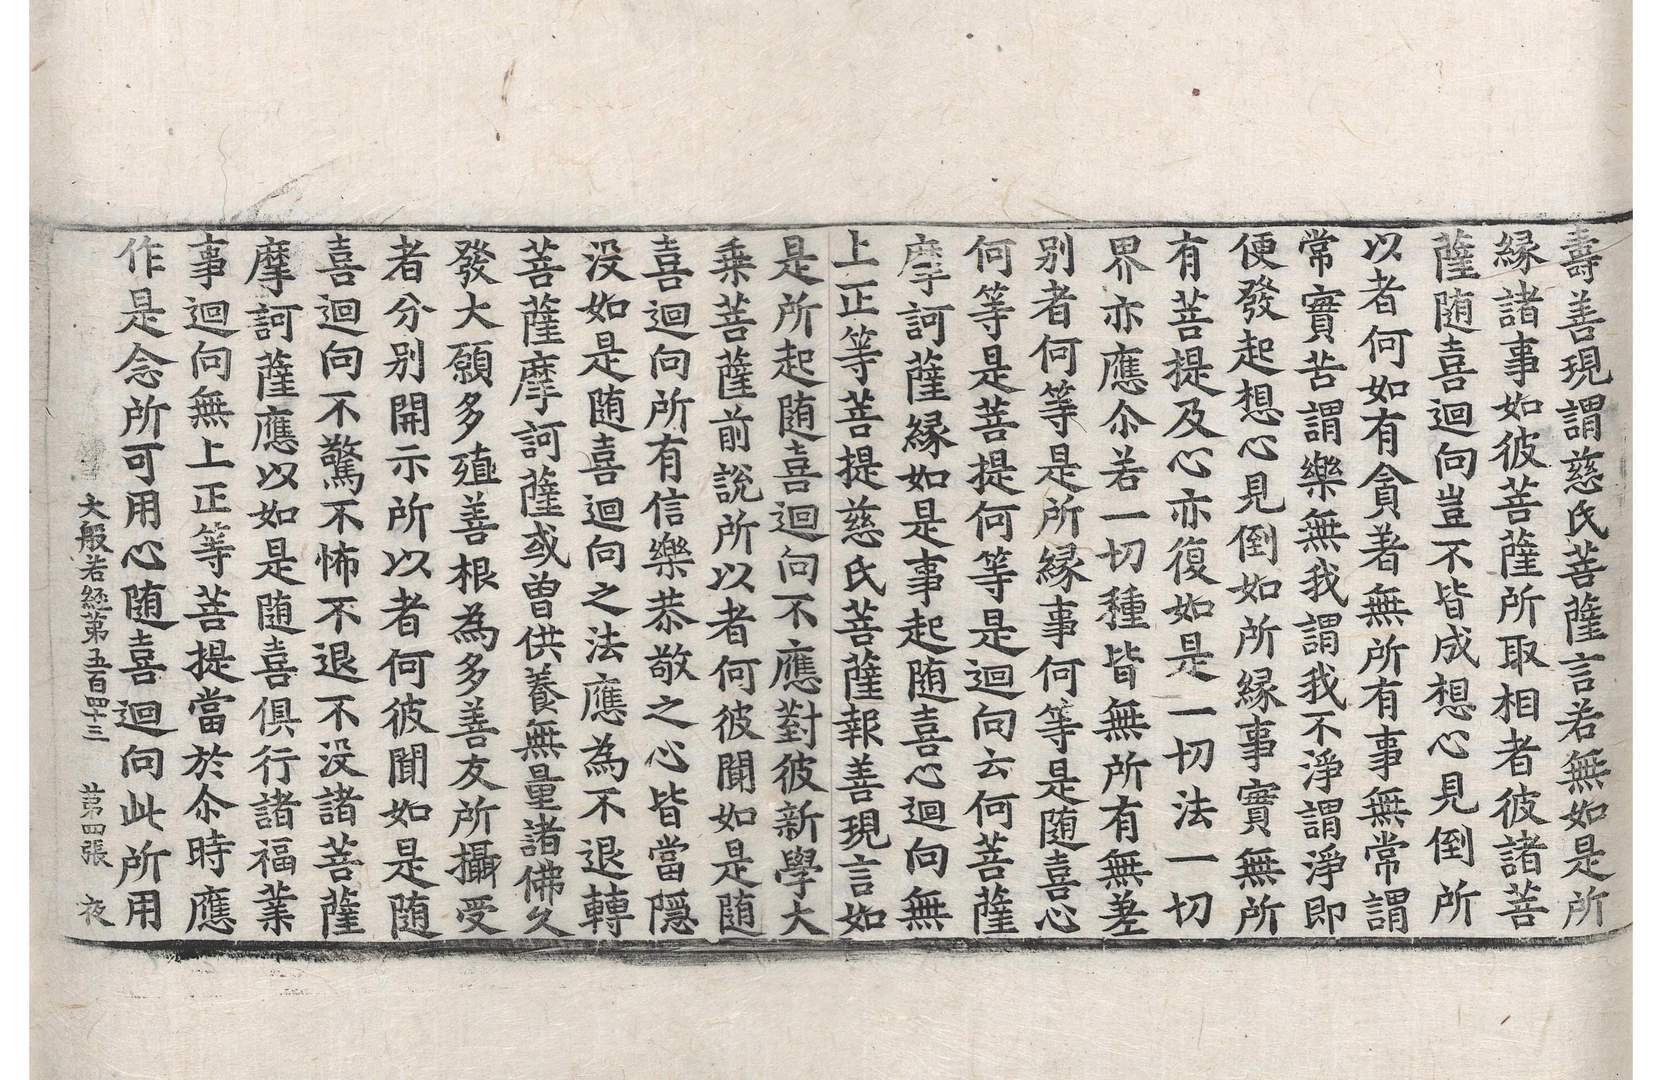 壽善現謂慈氏菩薩言若無如是所
縁諸事如彼菩薩所取相者彼諸菩
薩随喜迴向豈不皆成想心見倒所
以者何如有貪著無所有事無常謂
常實苦謂樂無我謂我不淨謂淨即
便發起想心見倒如所縁事實無所
有菩提及心亦復如是一切法一切
界亦應尒若一切種皆無所有無差
别者何等是所縁事何等是随喜心
何等是菩提何等是迴向云何菩薩
摩訶薩縁如是事起随喜心迴向無
上正等菩提慈氏菩薩報善現言如
是所起随喜迴向不應對彼新學大
乗菩薩前說所以者何彼聞如是随
喜迴向所有信樂恭敬之心皆當隠
没如是随喜迴向之法應為不退轉
菩薩摩訶薩或曽供養無量諸佛久
發大願多殖善根為多善友所攝受
者分别開示所以者何彼聞如是随
喜迴向不驚不怖不退不没諸菩薩
摩訶薩應以如是随喜俱行諸福業
事迴向無上正等菩提當於尒時應
作是念所可用心随喜迴向此所用
大般若經第五百四十三 第四張 夜